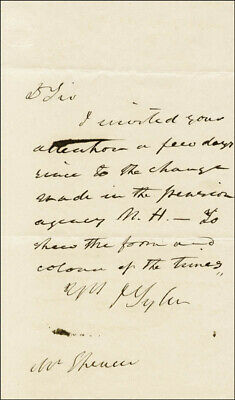 Dr Sir
I invited your
attention a few days
since to the change
made in the pension
agency N.H. — To
shew the form and
colour of the times,
J Tyler
Mr Spencer